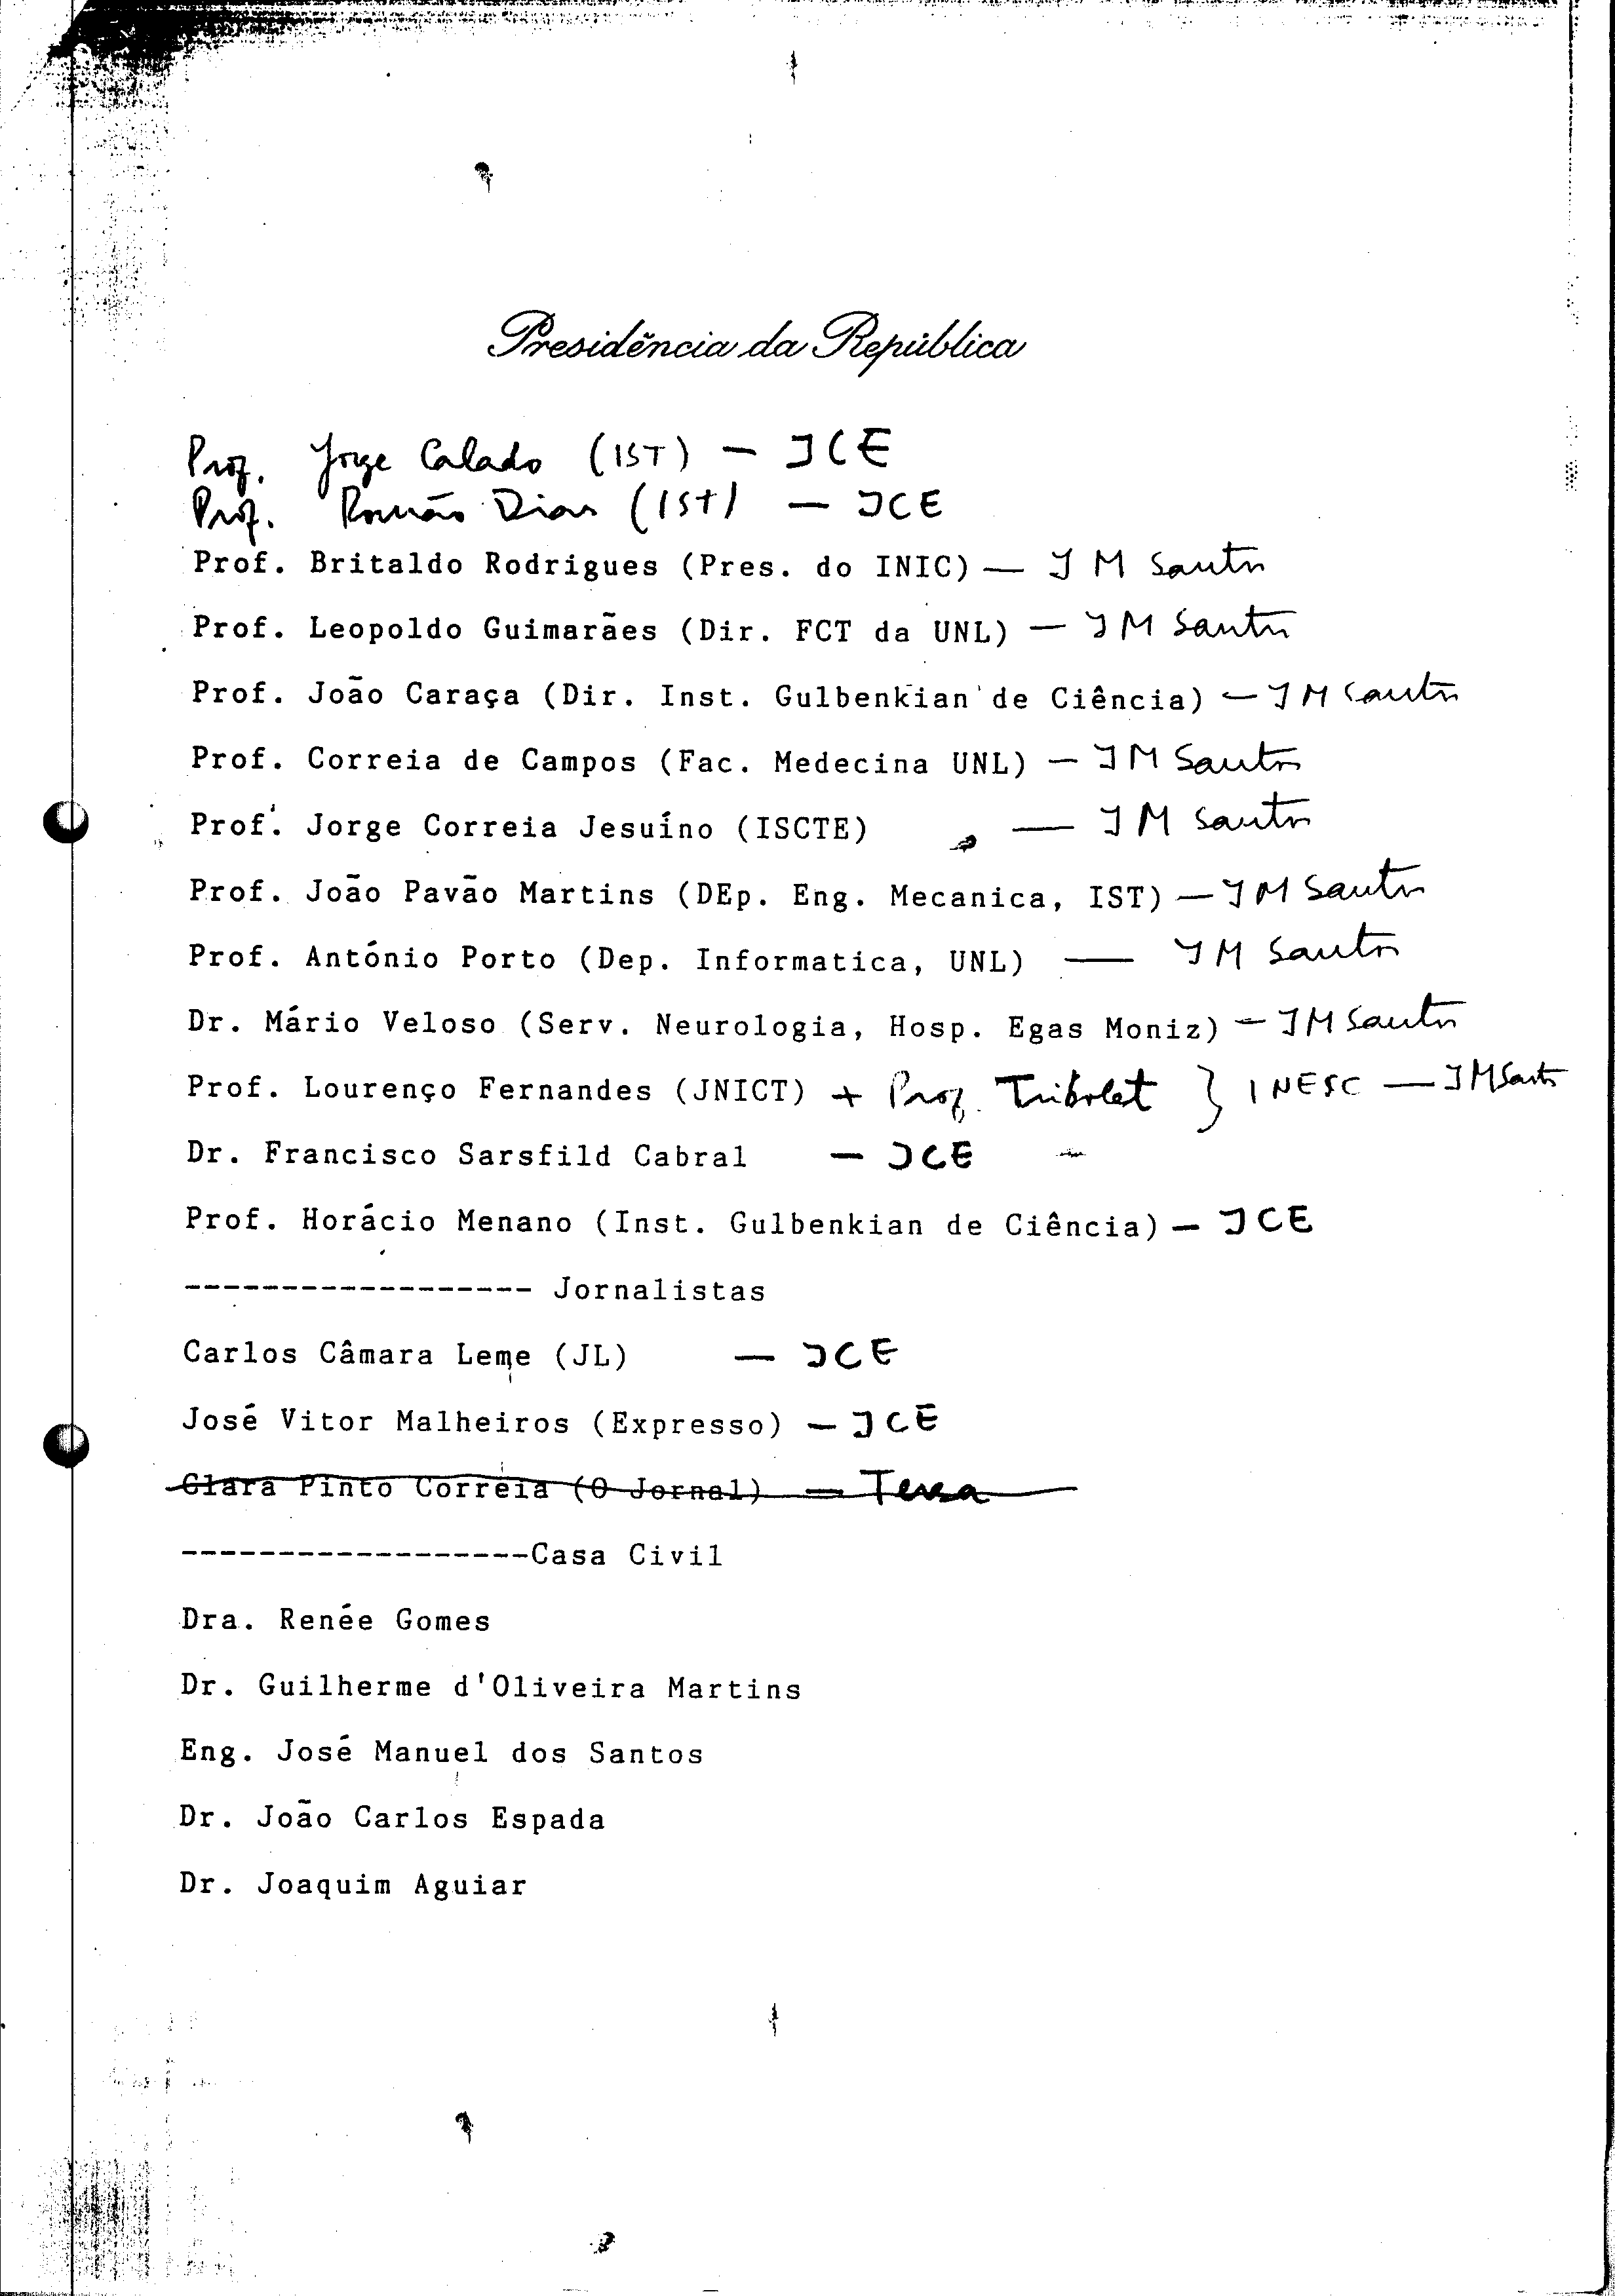 Presidência da República
Prof. Jorge Calado (IST) — JCE
Prof. Romão Dias (IST) — JCE
Prof. Britaldo Rodrigues (Pres. do INIC) — J M Santos
Prof. Leopoldo Guimarães (Dir. FCT da UNL) — J M Santos
Prof. João Caraça (Dir. Inst. Gulbenkian de Ciência) — J M Santos
Prof. Correia de Campos (Fac. Medecina UNL) — J M Santos
Prof. Jorge Correia Jesuíno (ISCTE) — J M Santos
Prof. João Pavão Martins (DEp. Eng. Mecanica, IST) — J M Santos
Prof. António Porto (Dep. Informatica, UNL) — J M Santos
Dr. Mário Veloso (Serv. Neurologia, Hosp. Egas Moniz) — J M Santos
Prof. Lourenço Fernandes (JNICT) + Prof. Tribolet } INESC — J M Santos
Dr. Francisco Sarsfild Cabral — JCE
Prof. Horácio Menano (Inst. Gulbenkian de Ciência) — JCE
------------------ Jornalistas
Carlos Câmara Leme (JL) — JCE
José Vitor Malheiros (Expresso) — JCE
Clara Pinto Correia (O Jornal) — Teresa
------------------Casa Civil
Dra. Renée Gomes
Dr. Guilherme d'Oliveira Martins
Eng. José Manuel dos Santos
Dr. João Carlos Espada
Dr. Joaquim Aguiar